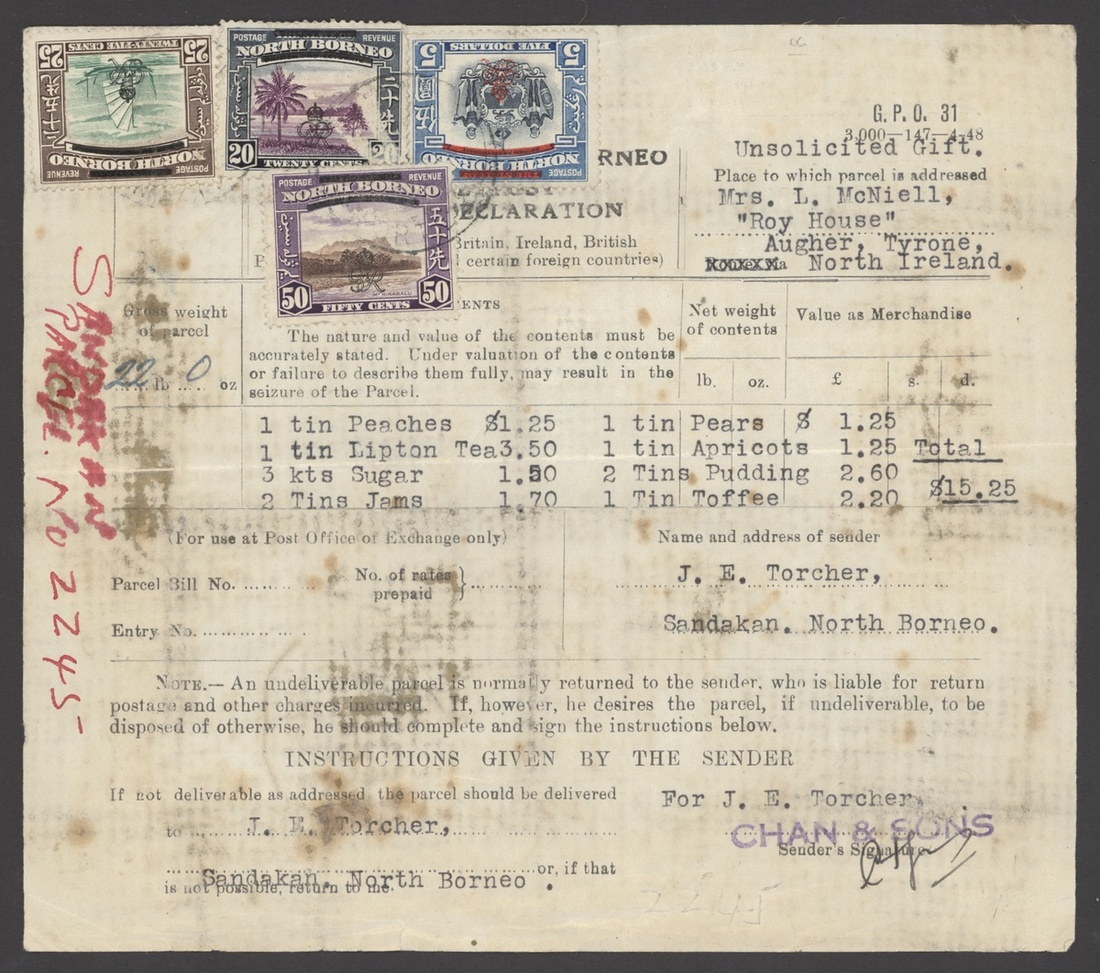 25 TWENTY-FIVE CENTS 25
NORTH BORNEO
POSTAGE REVENUE
POSTAGE REVENUE
NORTH BORNEO
二十先
20 TWENTY CENTS 20
5 FIVE DOLLARS 5
NORTH BORNEO
POSTAGE REVENUE
NORTH BORNEO
五十先
50 FIFTY CENTS 50
G. P. O. 31
3,000—147—4-48
RNEO
ECLARATION
Britain, Ireland, British
certain foreign countries)
Unsolicited Gift.
Place to which parcel is addressed
Mrs. L. McNiell,
"Roy House"
Augher, Tyrone,
North Ireland.
Gross weight
of parcel
22 lb 0 oz
ENTS
The nature and value of the contents must be
accurately stated. Under valuation of the contents
or failure to describe them fully, may result in the
seizure of the Parcel.
Net weight
of contents
lb. oz.
Value as Merchandise
£ s. d.
1 tin Peaches $1.25 1 tin Pears $ 1.25
1 tin Lipton Tea3.50 1 tin Apricots 1.25 Total
3 kts Sugar 1.50 2 Tins Pudding 2.60
2 Tins Jams 1.70 1 Tin Toffee 2.20 $15.25
SANDAKAN
PARCEL. No 2245
(For use at Post Office of Exchange only)
Parcel Bill No. ........
No. of rates prepaid } ............
Entry No. ..................
Name and address of sender
J. E. Torcher,
Sandakan. North Borneo.
NOTE.— An undeliverable parcel is normally returned to the sender, who is liable for return
postage and other charges incurred. If, however, he desires the parcel, if undeliverable, to be
disposed of otherwise, he should complete and sign the instructions below.
INSTRUCTIONS GIVEN BY THE SENDER
If not deliverable as addressed the parcel should be delivered
to J. E. Torcher,
or, if that
Sandakan. North Borneo .
is not possible, return to me.
For J. E. Torcher.
CHAN & SONS
Sender's Signature
2245